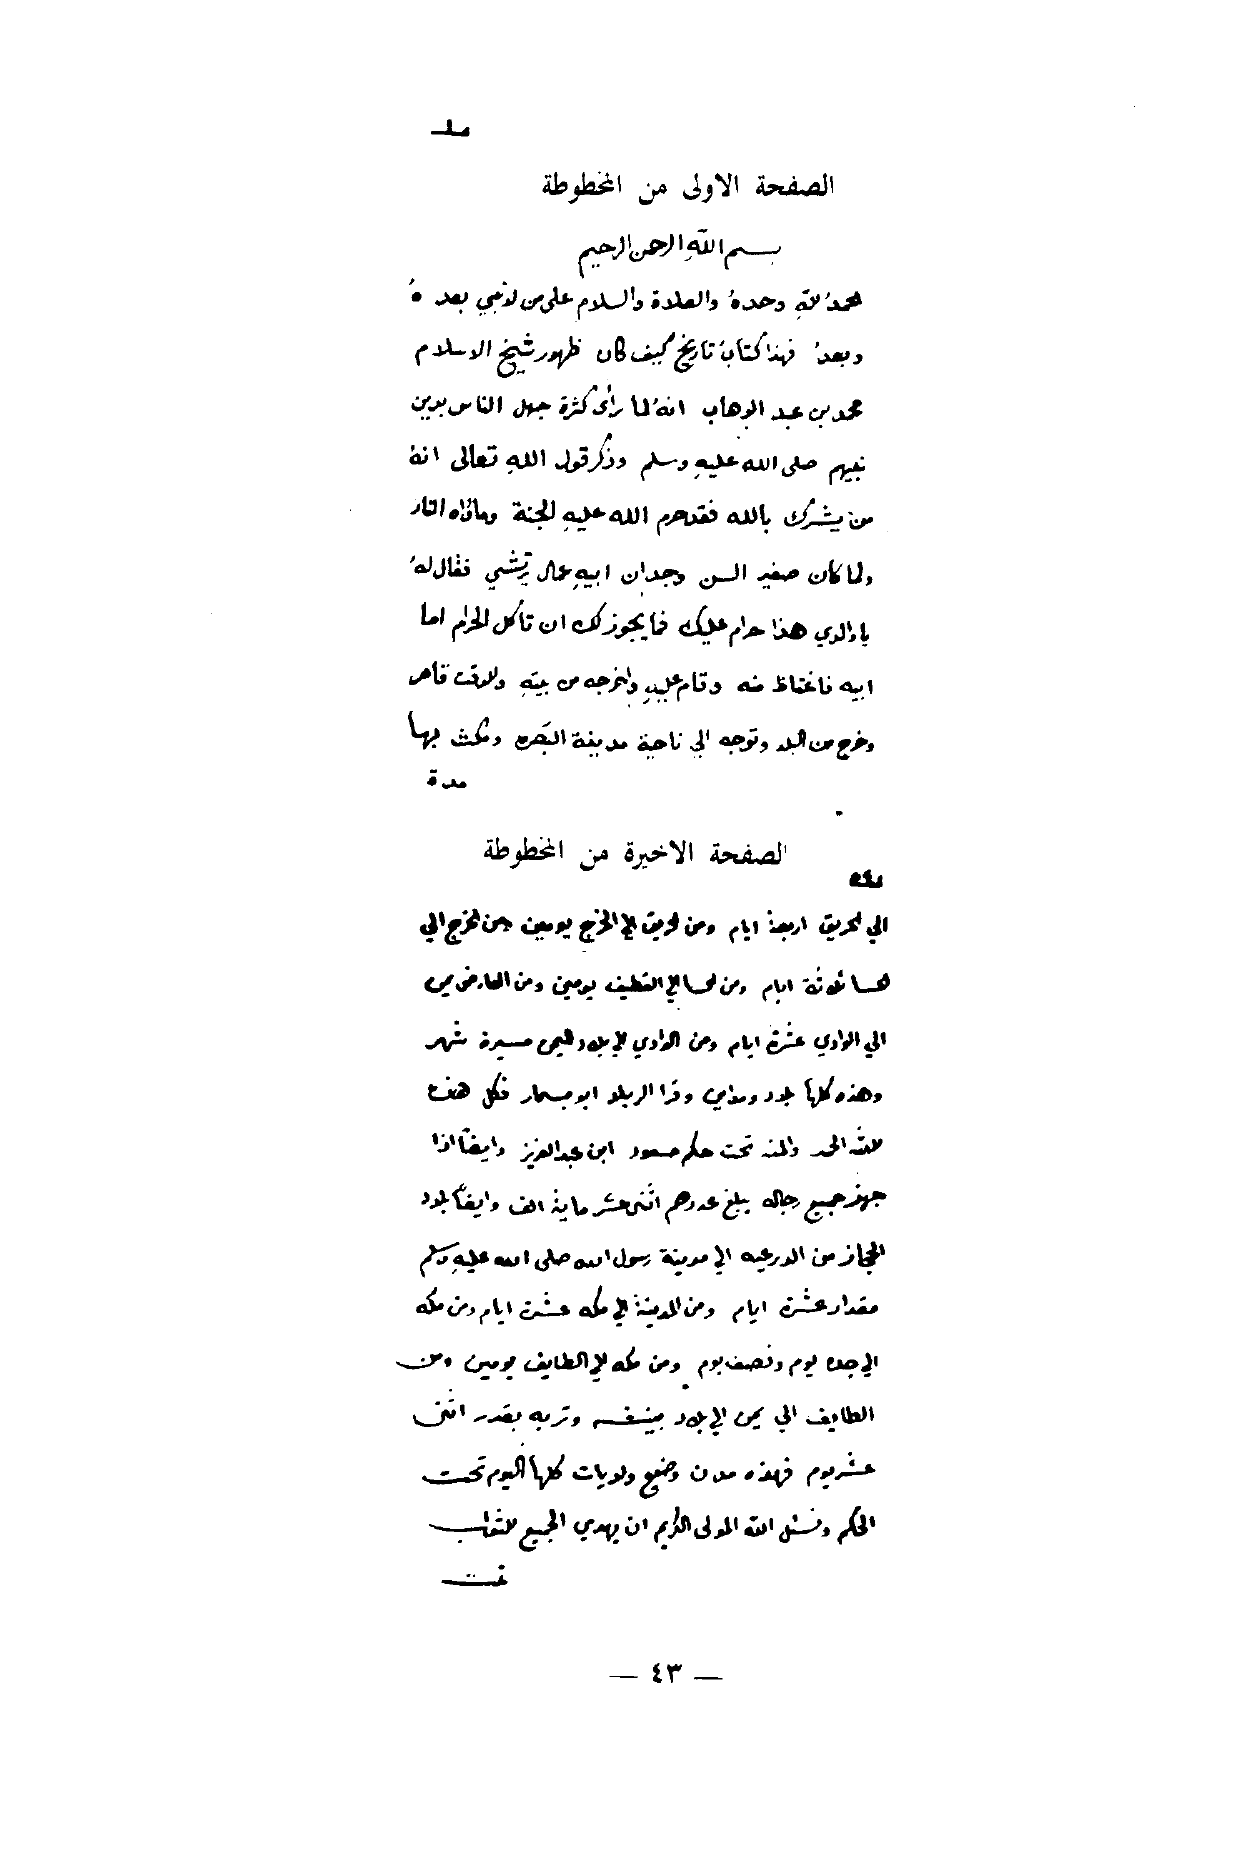 الصفحة الاولى من المخطوطة
بسم الله الرحمن الرحيم
الحمد لله وحده والصلاة والسلام على من لا نبي بعده
وبعد فهذا كتاب تاريخ كيف كان ظهور شيخ الاسلام
محمد بن عبد الوهاب انه لما رأى كثرة جهل الناس بدين
نبيهم صلى الله عليه وسلم وذكر قول الله تعالى انه
من يشرك بالله فقد حرم الله عليه الجنة وماواه النار
ولما كان صغير السن وجد ان ابيه فقال له
يا والدي هذا حرام عليك فما يجوز لك ان تاكل الحرام اما
ابيه فاغتاظ منه وقام عليه واخرجه من بيته
وخرج من البلد وتوجه الي ناحية مدينة البصره ومكث بها
مدة
الصفحة الاخيرة من المخطوطة
الي الحريق اربعة ايام ومن الحريق الي الخرج يومين ومن الخرج الي
الحسا ثلاثة ايام ومن الحسا الي القطيف يومين ومن العارض
الي الوادي عشرة ايام ومن الوادي الي بلاد مسيرة شهر
وهذه كلها بلدد ابو مسمار فكل هذه
لله الحمد والمنه تحت حكم سعود ابن عبد العزيز وايضا اذا
جهز جميع رجاله يبلغ عددهم اثنى عشر ماية الف وايضا بلدد
الحجاز من الدرعيه الي مدينة رسول الله صلى الله عليه وسلم
مقدار عشرة ايام ومن المدينة الي مكه عشرة ايام ومن مكه
الي جده يوم ونصف يوم ومن مكه الي الطايف يومين ومن
الطايف الي يمن الي بلاد وتربه بقدر اثنى
عشر يوم فهذه مدن وضيع وولايات كلها اليوم تحت
الحكم ونسئل الله المولى الكريم ان يهدي الجميع للثواب
تمت
— ٤٣ —